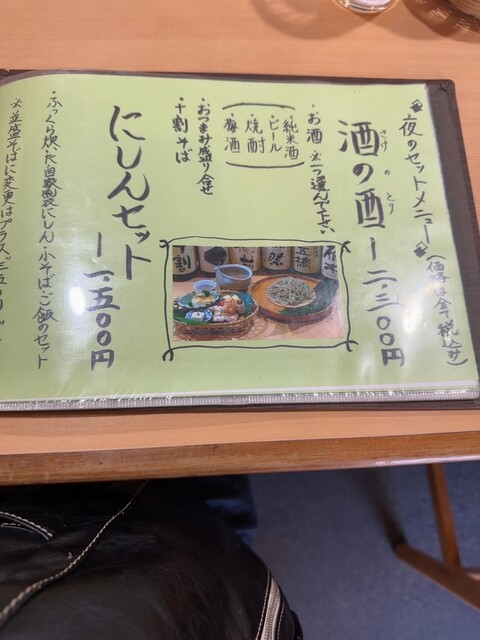 夜のセットメニュー
(価格は全て税込み)
酒の酉 ー 二、三〇〇円
さけ の とり
・お酒 ※一つ選んで下さい
純米酒
・ビール
・焼酎
・梅酒
・おつまみ盛り合せ
・十割そば
にしんセット
ー 一、五〇〇円
・ふっくら炊いた自家製にしん・小そば・ご飯のセット
※並盛そばに変更はプラス